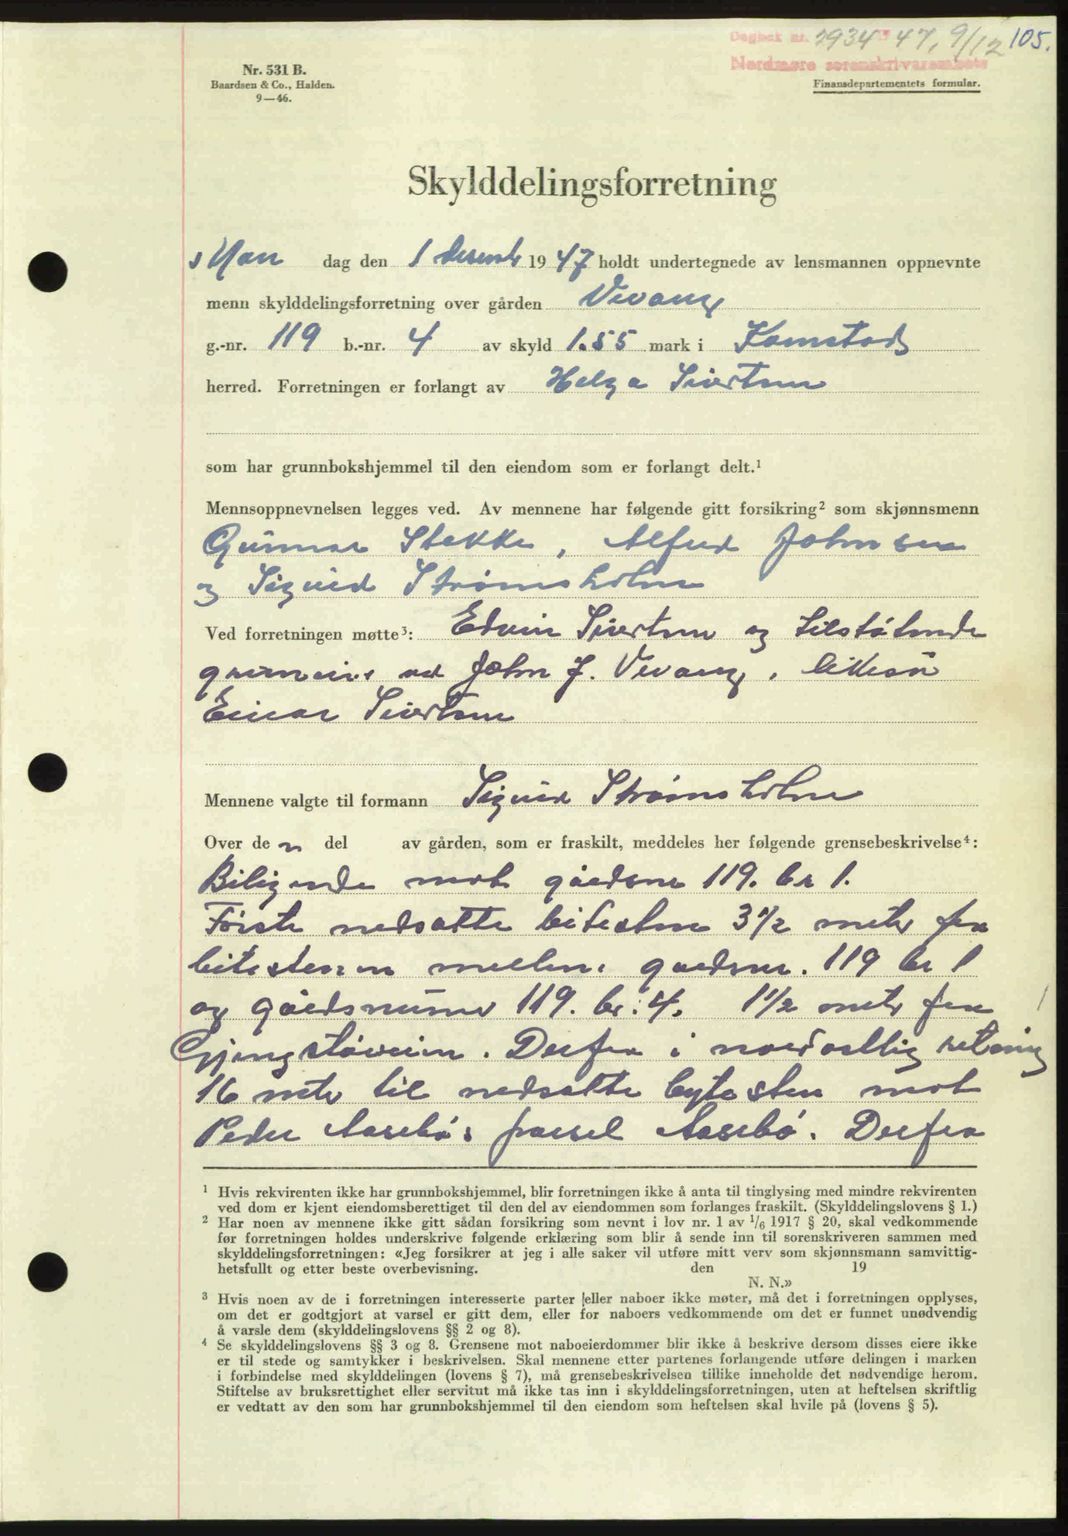 Dagbok nr. 2934 47, 9/12 105.
Nordmøre sorenskriverembete
Nr. 531 B.
Baardsen & Co., Halden.
9—46.
Finansdepartementets formular.
Skylddelingsforretning
Man dag den 1 desemb 1947 holdt undertegnede av lensmannen oppnevnte
menn skylddelingsforretning over gården Vevang
g.-nr. 119 b.-nr. 4 av skyld 1.55 mark i Kornstad
herred. Forretningen er forlangt av Helga Sivertsen
som har grunnbokshjemmel til den eiendom som er forlangt delt.¹
Mennsoppnevnelsen legges ved. Av mennene har følgende gitt forsikring² som skjønnsmenn
Gunnar Stokke, Alfred Johnsen
og Sigurd Strømsholm
Ved forretningen møtte³: Edvin Sivertsen og tilstøtende
ved John J. Vevang, likeså
Einar Sivertsen
Mennene valgte til formann Sigurd Strømsholm
Over de n del av gården, som er fraskilt, meddeles her følgende grensebeskrivelse⁴:
mot gårdsnr 119. br 1.
Første nedsatte bitesten 3½ meter fra
bitestenen mellem gardsnr. 119 br 1
og gårdsnummer 119. br: 4. 1½ meter fra
Gjengstøveien. Derfra i nordostlig retning
16 meter til nedsatte bytesten mot
Peder Aasebø's parsel Aasebø. Derfra
¹ Hvis rekvirenten ikke har grunnbokshjemmel, blir forretningen ikke å anta til tinglysing med mindre rekvirenten
ved dom er kjent eiendomsberettiget til den del av eiendommen som forlanges fraskilt. (Skylddelingslovens § 1.)
² Har noen av mennene ikke gitt sådan forsikring som nevnt i lov nr. 1 av 1/6 1917 § 20, skal vedkommende
før forretningen holdes underskrive følgende erklæring som blir å sende inn til sorenskriveren sammen med
skylddelingsforretningen: «Jeg forsikrer at jeg i alle saker vil utføre mitt verv som skjønnsmann samvittig-
hetsfullt og etter beste overbevisning. den 19
N. N.»
³ Hvis noen av de i forretningen interesserte parter eller naboer ikke møter, må det i forretningen opplyses,
om det er godtgjort at varsel er gitt dem, eller for naboers vedkommende om det er funnet unødvendig
å varsle dem (skylddelingslovens §§ 2 og 8).
⁴ Se skylddelingslovens §§ 3 og 8. Grensene mot naboeierdommer blir ikke å beskrive dersom disses eiere ikke
er til stede og samtykker i beskrivelsen. Skal mennene etter partenes forlangende utføre delingen i marken
i forbindelse med skylddelingen (lovens § 7), må grensebeskrivelsen tillike inneholde det nødvendige herom.
Stiftelse av bruksrettighet eller servitut må ikke tas inn i skylddelingsforretningen, uten at heftelsen skriftlig
er vedtatt av den som har grunnbokshjemmel til den eiendom som heftelsen skal hvile på (lovens § 5).